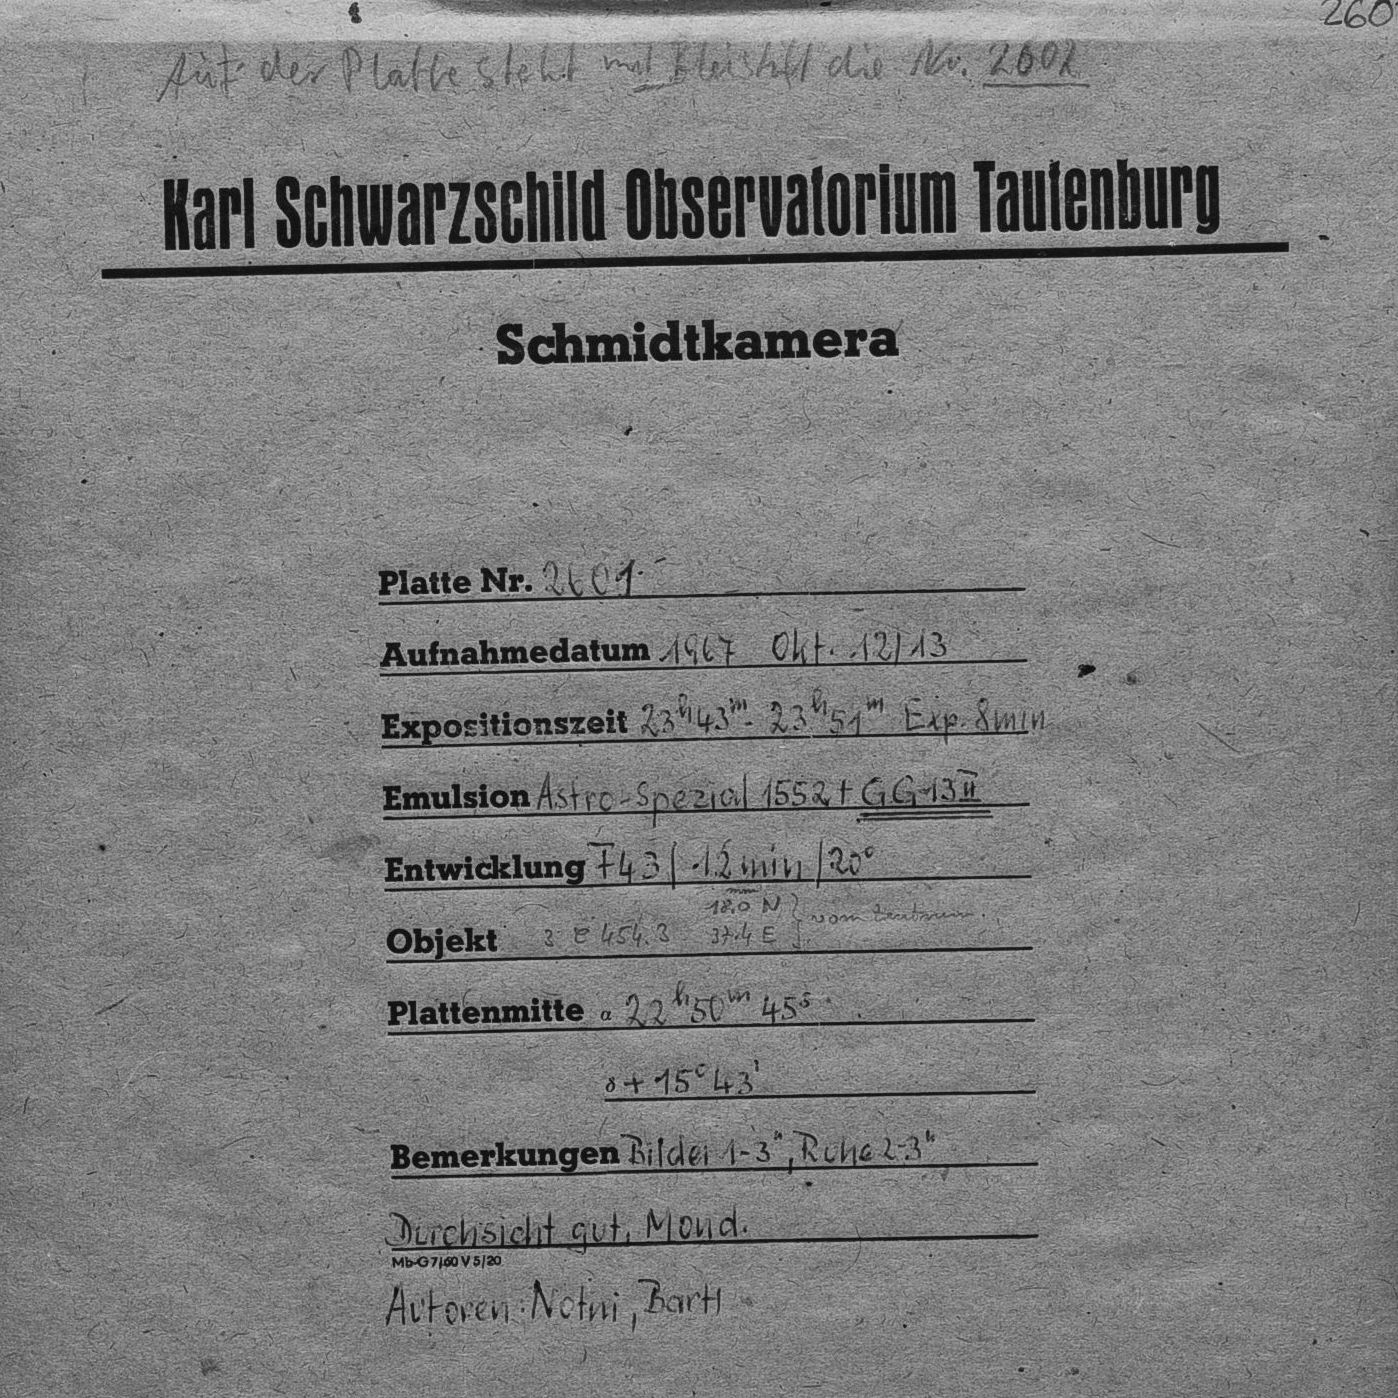 260
Auf der Platte steht mit Bleistift die Nr. 2602
Karl Schwarzschild Observatorium Tautenburg
Schmidtkamera
Platte Nr. 2601
Aufnahmedatum 1967 Okt. 12/13
Expositionszeit 23h43m - 23h51m Exp. 8min
Emulsion Astro-Spezial 1552 + GG13II
Entwicklung F43 / 12 min / 20°
18.0 mm N } vom Zentrum.
Objekt 3 C 454.3 37.4 E
Plattenmitte α 22h50m 45s
δ + 15° 43'
Bemerkungen Bilder 1-3", Ruhe 2-3"
Durchsicht gut, Mond.
Mb-G 7/60 V 5/20
Autoren: Notni, Bartl